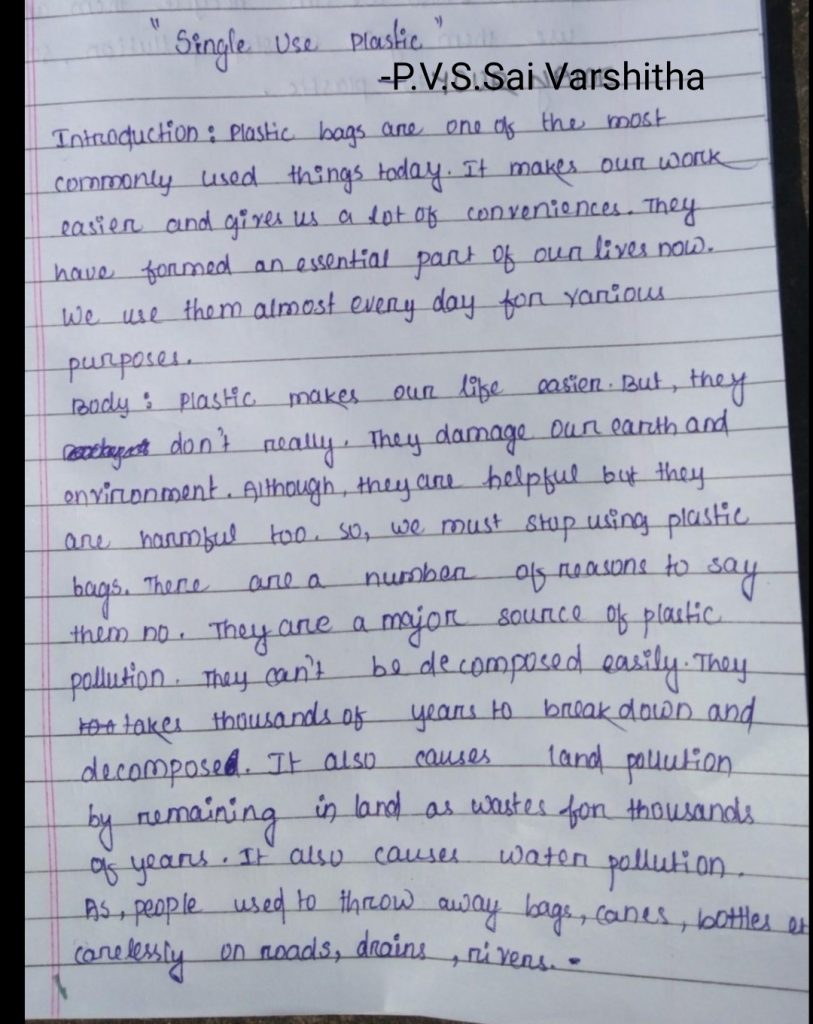 "Single Use Plastic"
-P.V.S.Sai Varshitha
Introduction: Plastic bags are one of the most
commonly used things today. It makes our work
easier and gives us a lot of conveniences. They
have formed an essential part of our lives now.
We use them almost every day for various
purposes.
Body: Plastic makes our life easier. But, they
don't really. They damage our earth and
environment. Although, they are helpful but they
are harmful too. So, we must stop using plastic
bags. There are a number of reasons to say
them no. They are a major source of plastic
pollution. They can't be decomposed easily. They
takes thousands of years to break down and
decomposed. It also causes land pollution
by remaining in land as wastes for thousands
of years. It also causes water pollution.
As, people used to throw away bags, canes, bottles
carelessly on roads, drains, rivers.